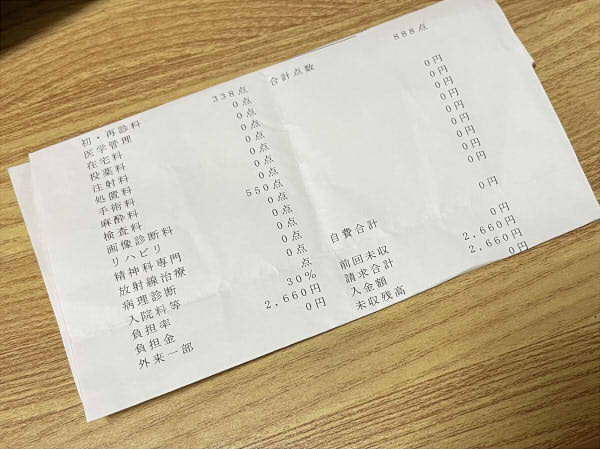 初・再診料 338点
医学管理 0点
在宅料 0点
投薬料 0点
注射料 0点
処置料 0点
手術料 0点
麻酔料 0点
検査料 550点
画像診断料 0点
リハビリ 0点
精神科専門 0点
放射線治療 0点
病理診断 0点
入院料等 点
負担率 30%
負担金 2,660円
外来一部 0円
合計点数 888点
0円
0円
0円
0円
0円
0円
0円
0円
自費合計 0円
前回未収 0円
請求合計 2,660円
入金額 2,660円
未収残高 0円